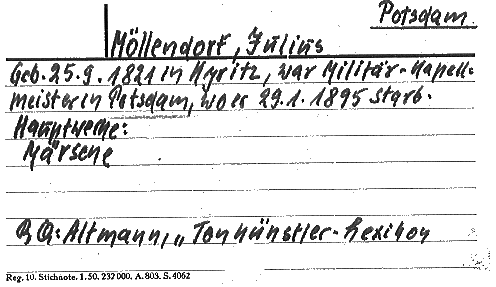 Potsdam
Möllendorf, Julius
Geb. 25.9. 1821 in Kyritz, war Militär-Kapell-
meister in Potsdam, wo er 29.1. 1895 starb.
Hauptwerke:
Märsche
Altmann, „Tonkünstler-Lexikon
Reg. 10. Stichnote. 1. 50. 232 000. A. 803. S. 4062